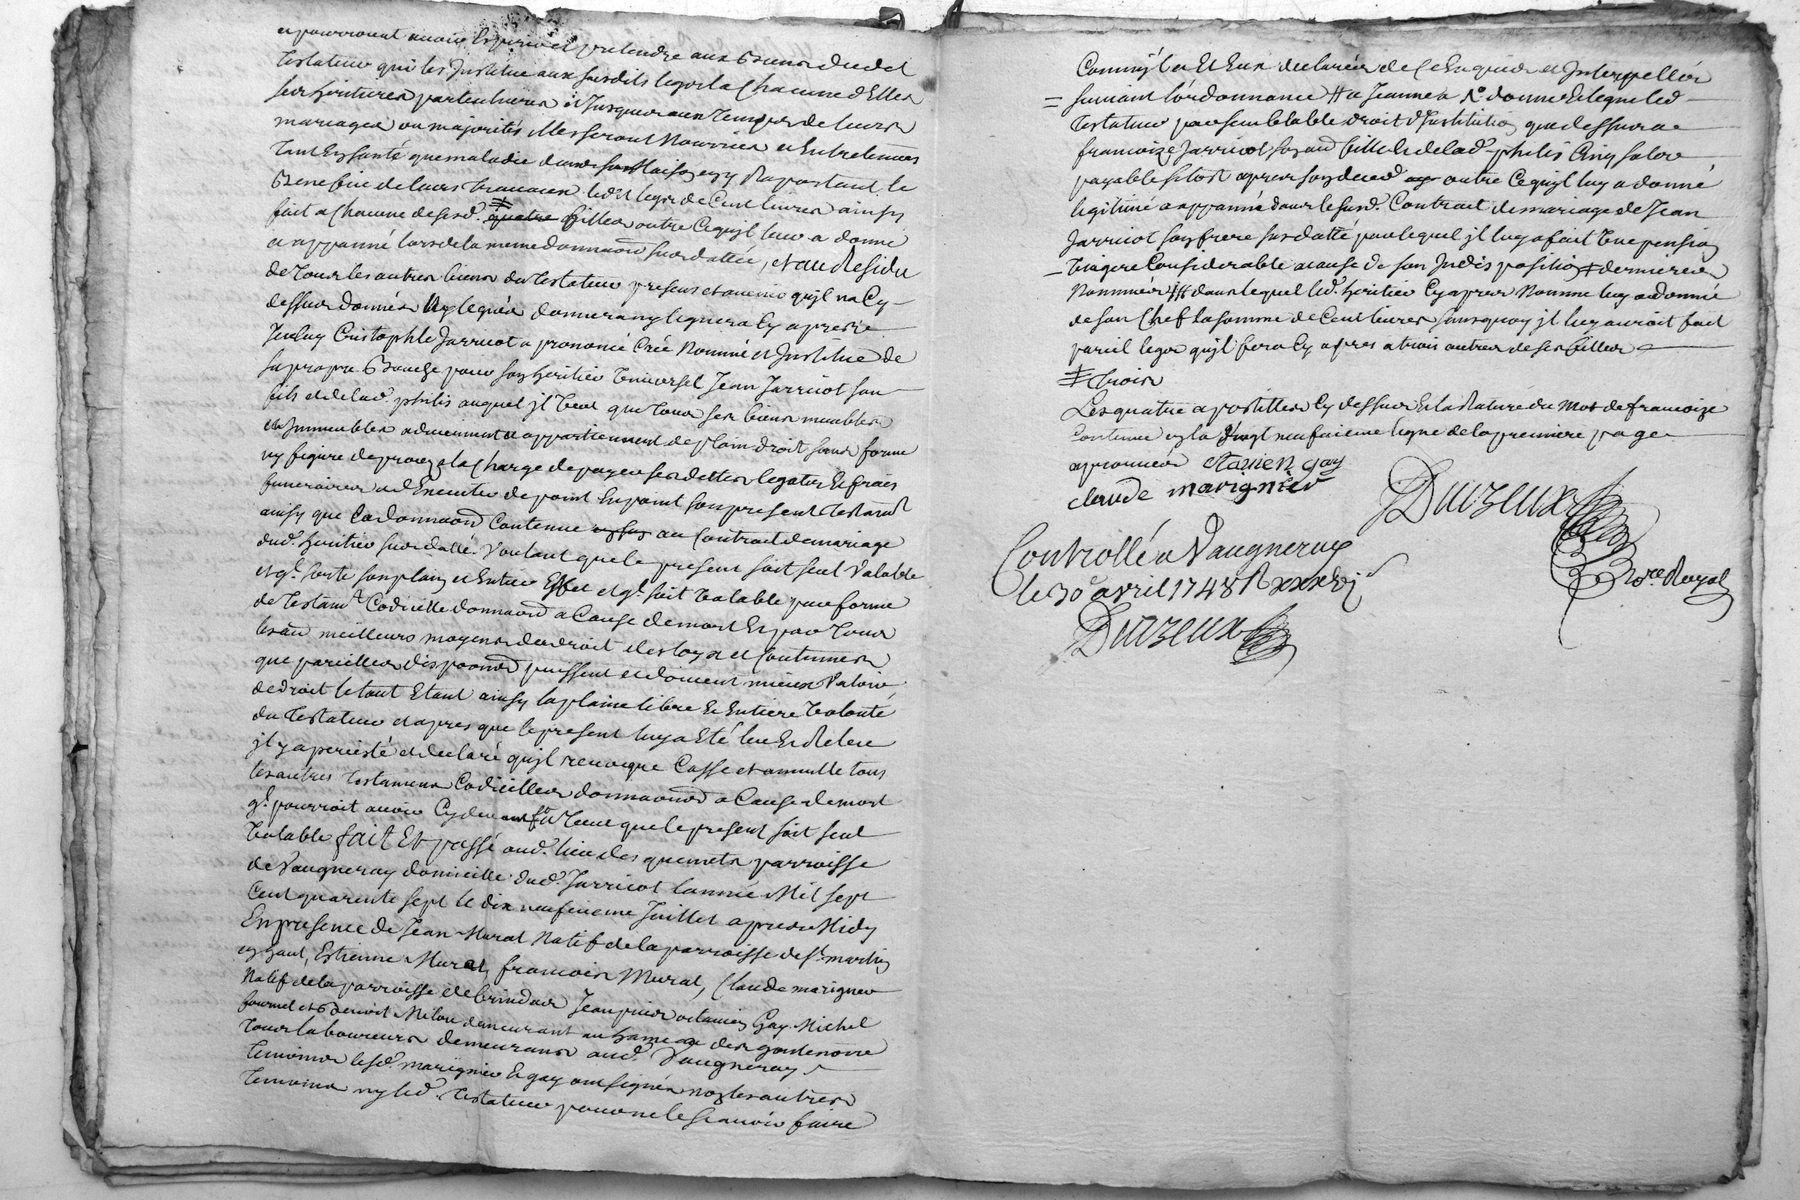 et pourroient avoir Esperer et pretendre aux Biens dudit
Testateur qui les Institue aux susdits legos la Chacune d'Elles
ses heritieres particulieres et Jusques aux Temps de leurs
mariages ou majorités elles seront Nourries et Entretenues
Tant En santé que maladie dans sa Maison en y Raportant le
Benefice de leurs travaux led.t legs de Cent livres ainsy
fait a Chacune desd. quatre filles outre Ce quil leur a donné
et appanné lors de la meme donnaon susdattée, et au Residu
de Tous les autres biens du Testateur presens et avenir quil na Cy
dessus donnés Ny legués donnera ny leguera Cy apres
Iceluy Cristophle Jarricot a prononcé Créé Nommé et Institué de
sa propre Bouche pour son heritier Universel Jean Jarricot son
fils et de lad. philis auquel il Veut que Tous ses biens meubles
et Immeubles adviennent et appartiennent de plain droit sans forme
ny figure de proces a la Charge de payer ses dettes legats Et frais
funeraires et d'Executer de point En point son present Testamt
ainsy que la donnaon Contenue au Contrat de mariage
dud. heritier susdatté. Voulant que le present soit seul Valable
et q. sorte son plain et Entier Effet et q. soit Valable par forme
de Testamt Codicille donnaon a Cause de mort Et par Tous
les au meilleurs moyens de droit et les loyx et Coutumes
que pareilles dispoons puissent et doivent mieux Valoir
de droit le tout Etant ainsy la plaine libre Et Entiere Volonté
du Testateur et apres que le present luy a Eté leu Et Releu
jl y a percisté et declaré quil revoque Casse et annulle tous
les autres Testamens Codicilles donnaons a Cause de mort
q. pourroit avoir Cy devant ft Veut que le present soit seul
Valable fait Et passé aud. lieu des quemets parroisse
de Vaugneray domicille dud. Jarricot lannée Mil sept
Cent quarente sept le dix neufvieme Juillet apres Midy
En presence de Jean Murat Natif de la parroisse de St. martin
en haut, Estienne Murat, francois Murat, Claude marignier
Natif de la parroisse de brindas Jean pierre et damien Gay Michel
fournel et Benoit Milon demeurant au hameau des
Tous laboureurs demeurans aud. Vaugneray
Temoins lesd. marignier Et gay ont signés non les autres
Temoins ny led. Testateur pour ne le scavoir faire
Comm' Et Eux declarés de Ce Enquis et Interpellés
= suivant l'ordonnance # a Jeanne donne Et legue led
Testateur par semblable droit d'Institution que dessus a
francoize Jarricot sa fille et de lad. philis Cinq sols
payable sitost apres son deces outre Ce quil luy a donné
legitimé et appanné dans le susd. Contrat de mariage de Jean
Jarricot son frere susdatté par lequel jl luy a fait Une pension
= Viagere Considerable a cause de son Indisposition # dernieres
Nommées ### dans lequel led. heritier Cy apres Nommé luy a donné
de son Chef la somme de Cent livres sans quoy jl luy auroit fait
pareil legs quil fera Cy apres a trois autres de ses filles
# trois
Les quatre apostilles Cy dessus Et la Rature du Mot de francoize
Contenue en la Vingt neufvieme ligne de la premiere page
aprouvées damien gay
claude marignier
Duvzeux
Controllé a Vaugneray
le 30 avril 1748 R
Nore Royal
Duvzeux